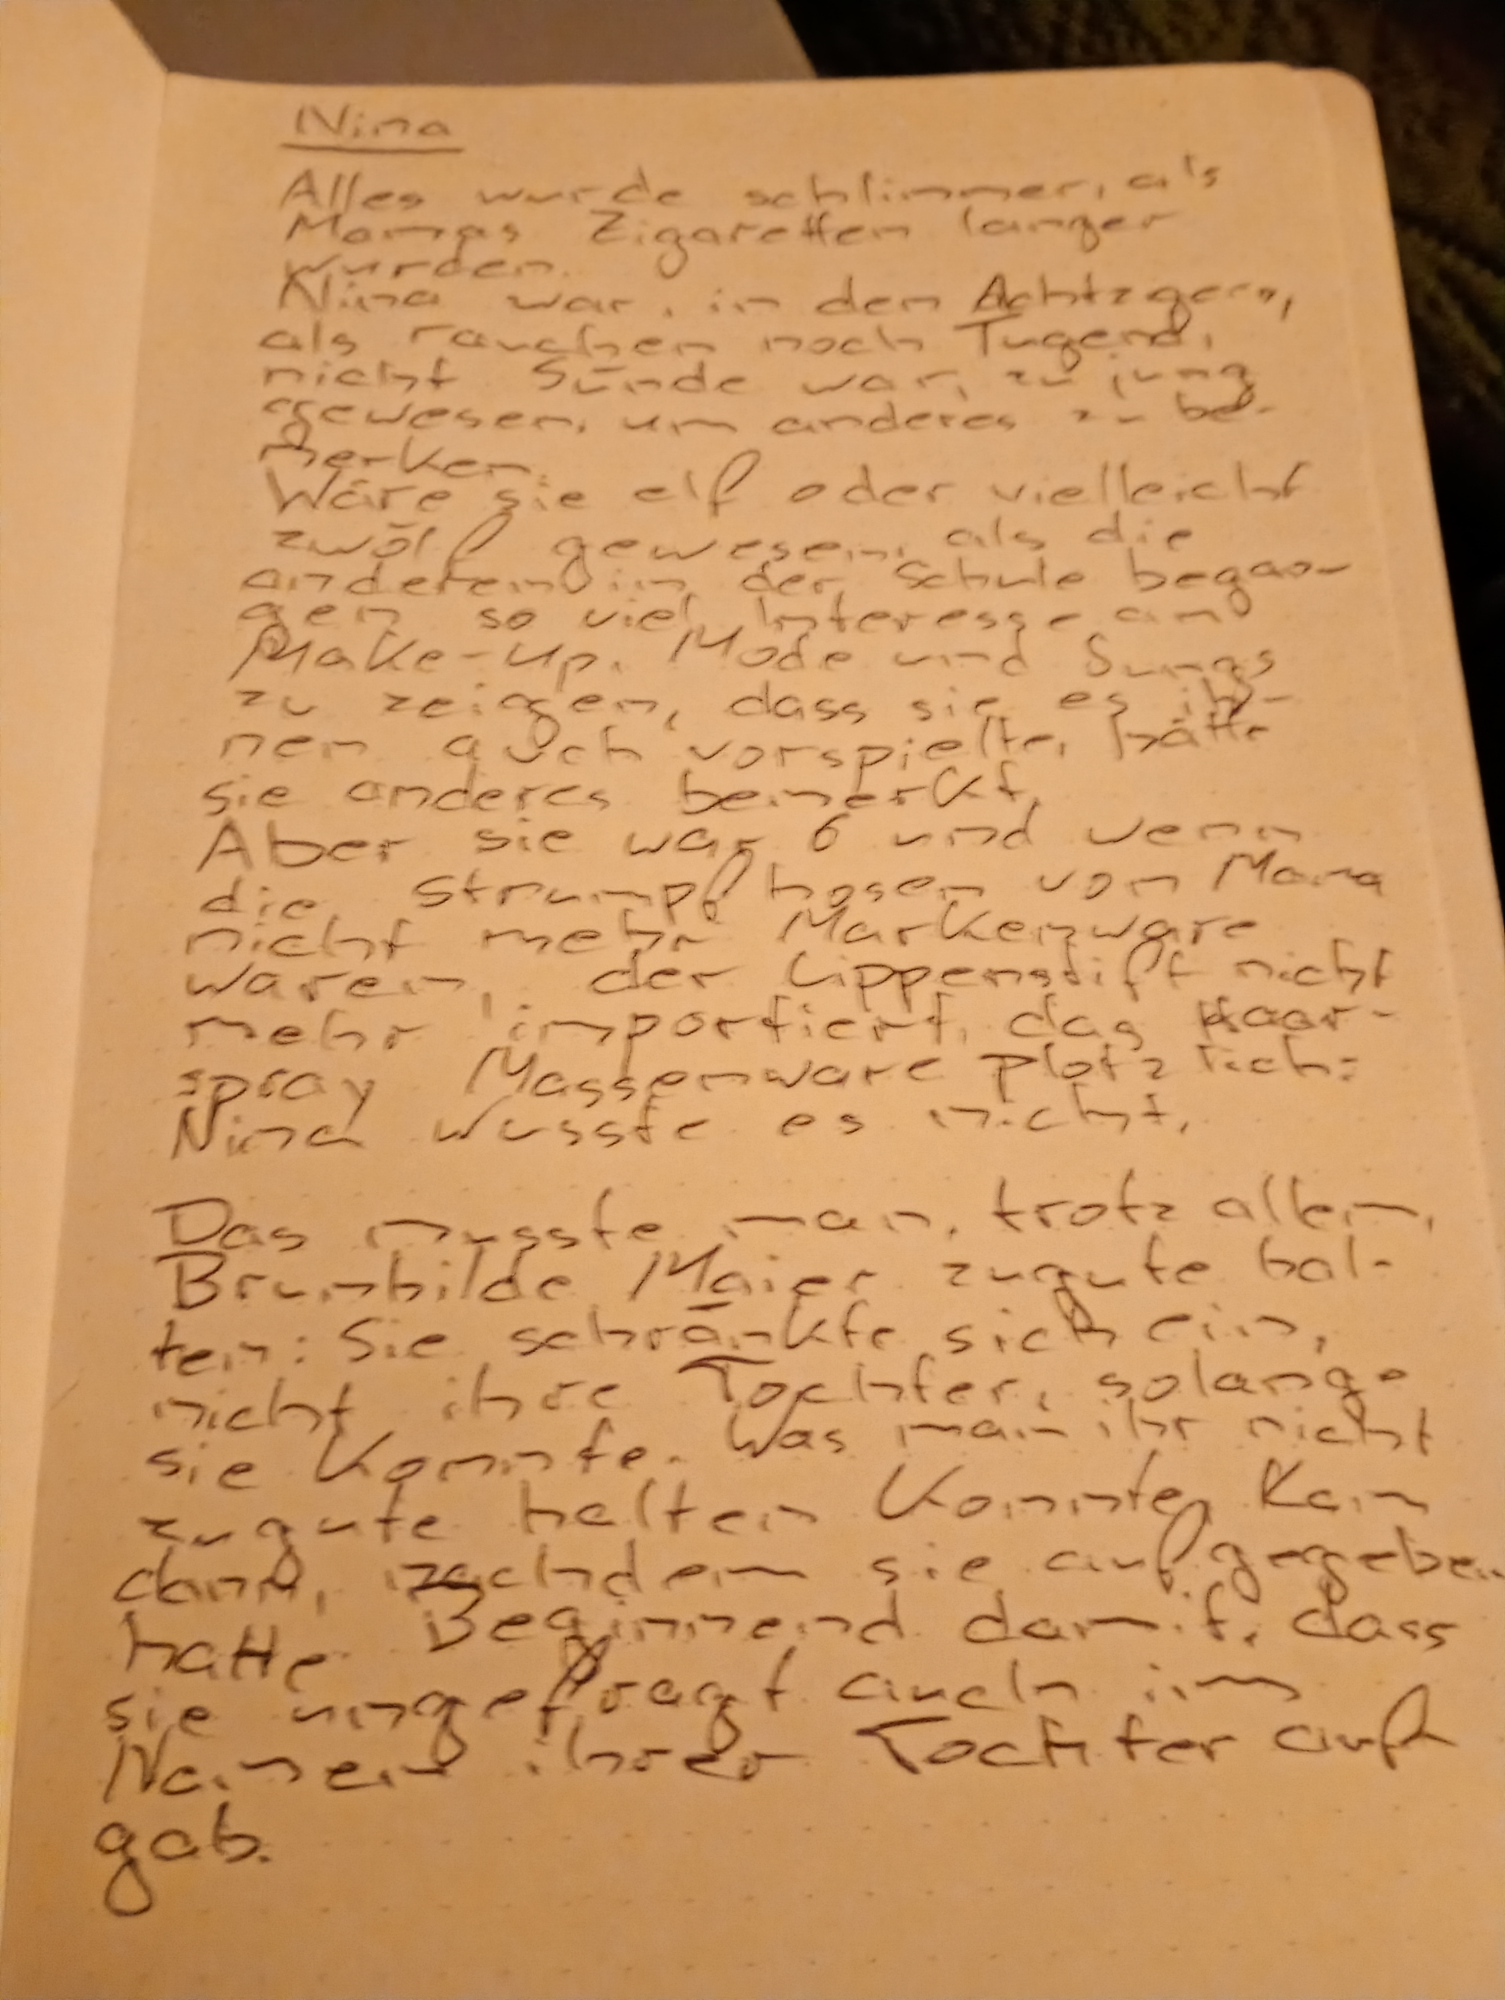 Nina
Alles wurde schlimmer, als
Mamas Zigaretten langer
wurden.
Nina war, in den Achtzgern,
als rauchen noch Tugend,
nicht Sünde war, zu jung
gewesen, um anderes zu be-
merken.
Wäre sie elf oder vielleicht
zwölf gewesen, als die
anderen in der Schule began-
gen so viel Interesse an
Make-Up, Mode und Jungs
zu zeigen, dass sie es ih-
nen auch vorspielte, hätte
sie anderes bemerkt.
Aber sie war 6 und wenn
die Strumpfhosen von Mama
nicht mehr Markenware
waren, der Lippenstift nicht
mehr importiert, das Haar-
spray Massenware plotzlich:
Nina wusste es nicht.
Das musste man, trotz allem,
Brunhilde Maier zugute hal-
ten: Sie schränkte sich ein,
nicht ihre Tochter, solange
sie konnte. Was man ihr nicht
zugute halten konnte, kam
dann, nachdem sie aufgegeben
hatte. Beginnend damit, dass
sie ungefragt auch im
Namen ihrer Tochter auf
gab.